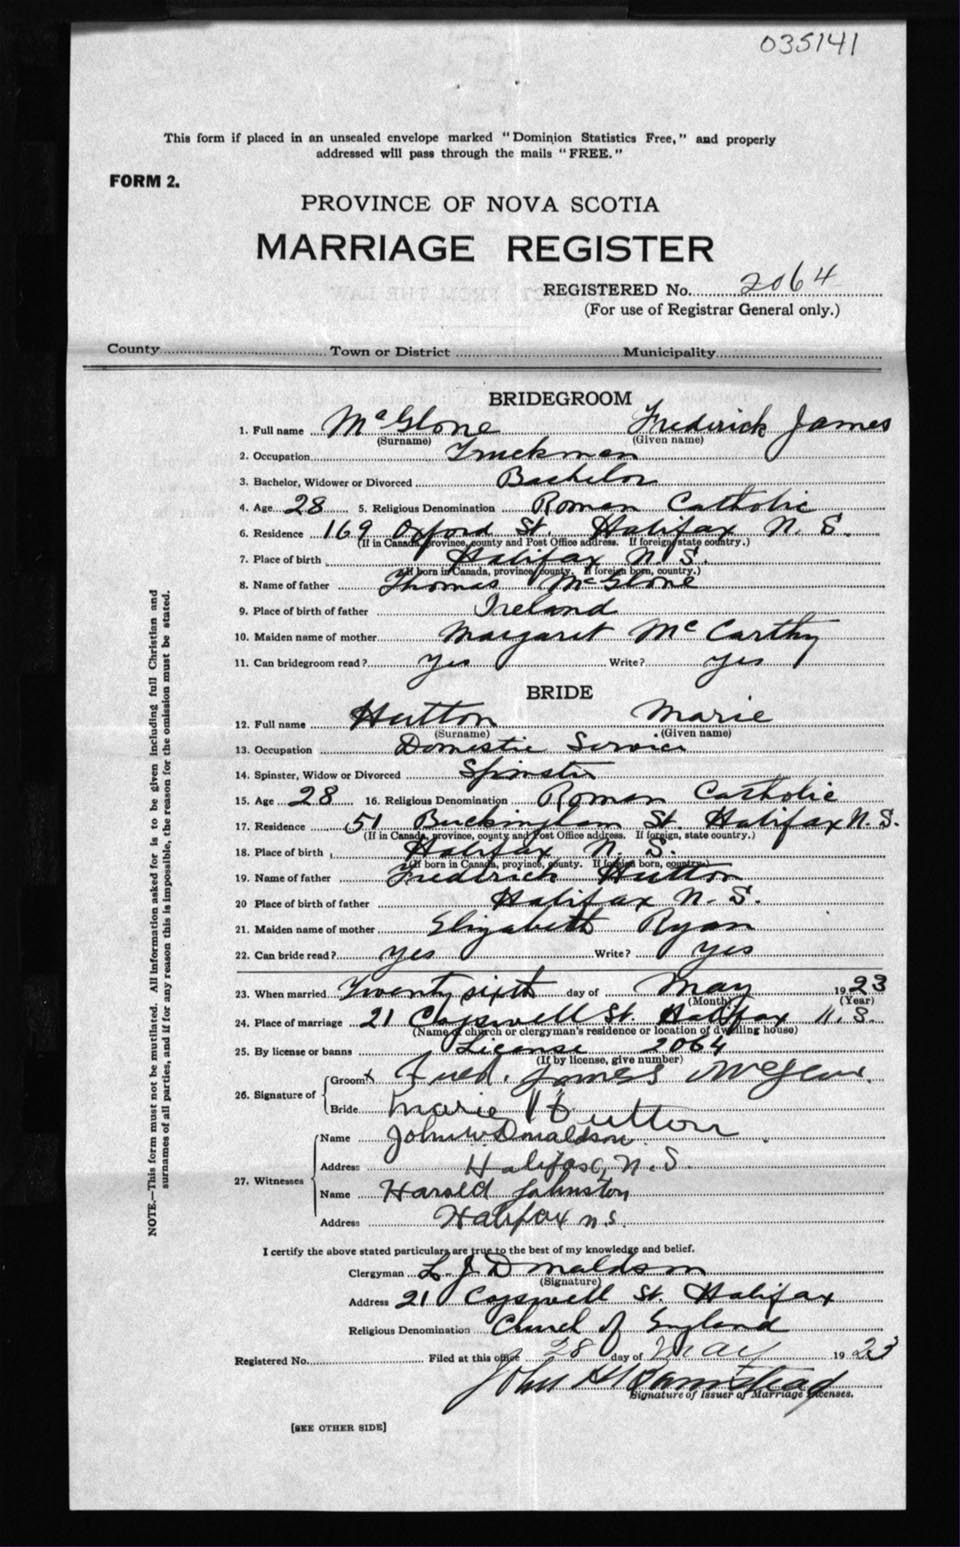 035141
This form if placed in an unsealed envelope marked "Dominion Statistics Free," and properly
addressed will pass through the mails "FREE."
FORM 2.
PROVINCE OF NOVA SCOTIA
MARRIAGE REGISTER
REGISTERED No. 2064
(For use of Registrar General only.)
County Town or District Municipality
BRIDEGROOM
1. Full name McGlone Frederick James
(Surname) (Given name)
2. Occupation Truckman
3. Bachelor, Widower or Divorced Bachelor
4. Age 28 5. Religious Denomination Roman Catholic
6. Residence 169 Oxford St. Halifax N. S.
(If in Canada, province, county and Post Office address. If foreign state country.)
7. Place of birth Halifax N. S.
(If born in Canada, province county. If foreign born, country.)
8. Name of father Thomas McGlone
9. Place of birth of father Ireland
10. Maiden name of mother Margaret McCarthy
11. Can bridegroom read? yes Write? yes
BRIDE
12. Full name Hutton Marie
(Surname) (Given name)
13. Occupation Domestic Service
14. Spinster, Widow or Divorced Spinster
15. Age 28 16. Religious Denomination Roman Catholic
17. Residence 51 Buckingham St. Halifax N. S.
(If in Canada, province, county and Post Office address. If foreign, state country.)
18. Place of birth Halifax N. S.
(If born in Canada, province, county. If foreign born, country.)
19. Name of father Fredrick Hutton
20 Place of birth of father Halifax N. S.
21. Maiden name of mother Elizabeth Ryan
22. Can bride read? yes Write? yes
23. When married Twenty sixth day of May 1923
(Month) (Year)
24. Place of marriage 21 Cogswell St. Halifax N. S.
(Name of church or clergyman's residence or location of dwelling house)
25. By license or banns License 2064
(If by license, give number)
26. Signature of
Groom x Fred. James McGlone.
Bride Marie Hutton
27. Witnesses
Name John W. Donaldson
Address Halifax, N. S.
Name Harold Johnston
Address Halifax N.S.
I certify the above stated particulars are true to the best of my knowledge and belief.
Clergyman L. J. Donaldson
(Signature)
Address 21 Cogswell St. Halifax
Religious Denomination Church of England
Registered No. Filed at this office 28 day of May 1923
John
Signature of Issuer of Marriage Licenses.
[SEE OTHER SIDE]
NOTE.—This form must not be mutilated. All information asked for is to be given including full Christian and
surnames of all parties, and if for any reason this is impossible, the reason for the omission must be stated.